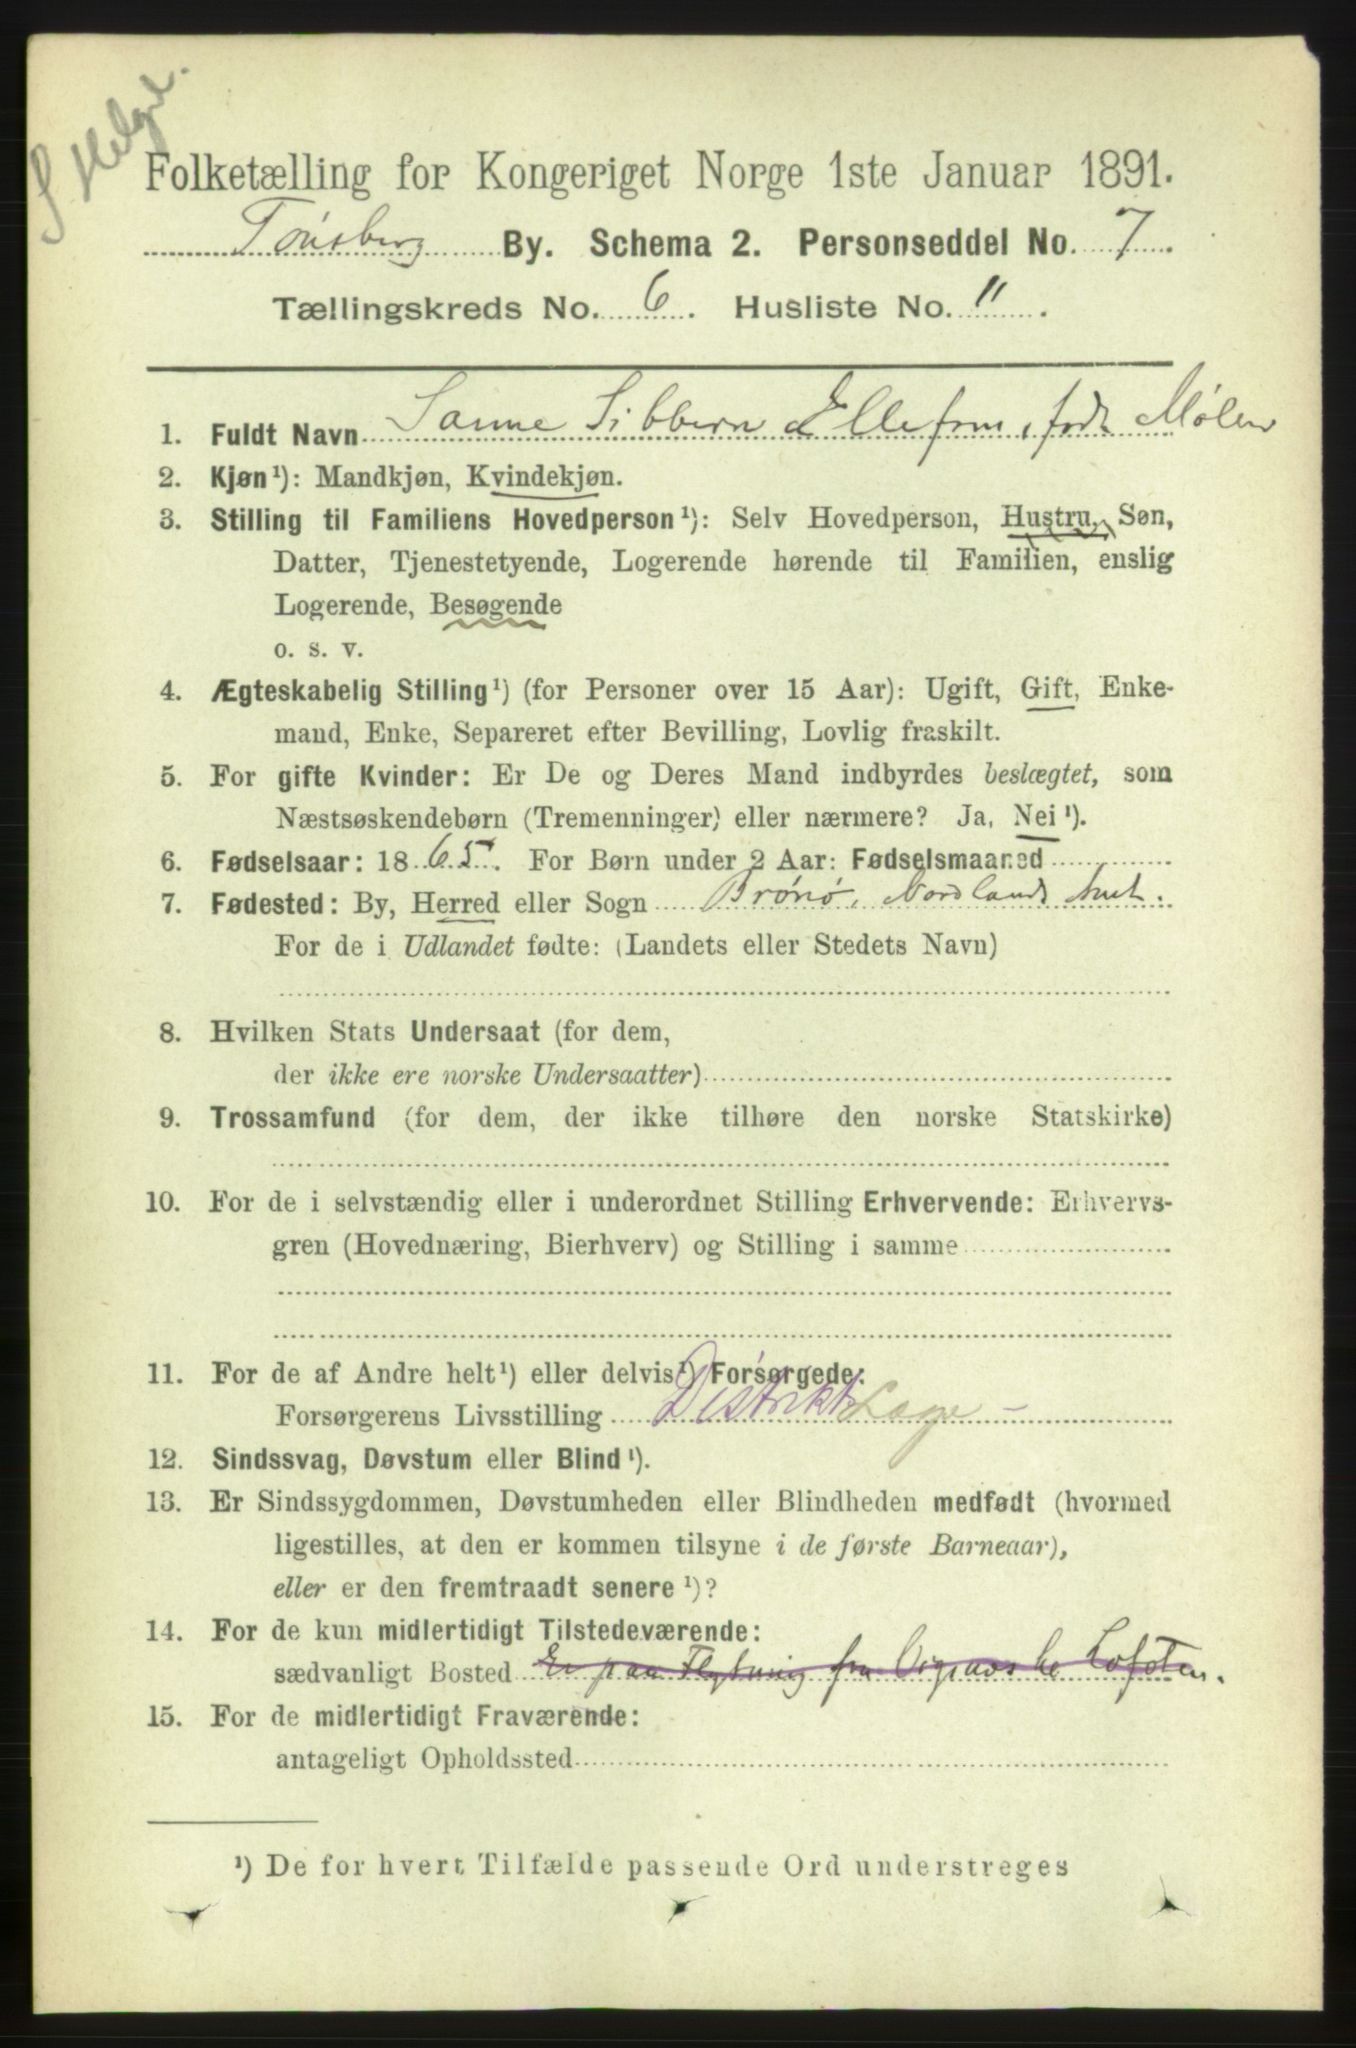 S. Helgel.
Folketælling for Kongeriget Norge 1ste Januar 1891.
Tønsberg By. Schema 2. Personseddel No. 7.
Tællingskreds No. 6. Husliste No. 11.
1. Fuldt Navn Sanne Sibbern Ellefsen, født Mølen
2. Kjøn¹): Mandkjøn, Kvindekjøn.
3. Stilling til Familiens Hovedperson¹): Selv Hovedperson, Hustru, Søn,
Datter, Tjenestetyende, Logerende hørende til Familien, enslig
Logerende, Besøgende
o. s. v.
4. Ægteskabelig Stilling¹) (for Personer over 15 Aar): Ugift, Gift, Enke-
mand, Enke, Separeret efter Bevilling, Lovlig fraskilt.
5. For gifte Kvinder: Er De og Deres Mand indbyrdes beslægtet, som
Næstsøskendebørn (Tremenninger) eller nærmere? Ja, Nei¹).
6. Fødselsaar: 1865. For Børn under 2 Aar: Fødselsmaaned
7. Fødested: By, Herred eller Sogn Brønø, Nordlands Amt.
For de i Udlandet fødte: (Landets eller Stedets Navn)
8. Hvilken Stats Undersaat (for dem,
der ikke ere norske Undersaatter)
9. Trossamfund (for dem, der ikke tilhøre den norske Statskirke)
10. For de i selvstændig eller i underordnet Stilling Erhvervende: Erhvervs-
gren (Hovednæring, Bierhverv) og Stilling i samme
11. For de af Andre helt¹) eller delvis¹) Forsørgede:
Forsørgerens Livsstilling DistriktsLæge
12. Sindssvag, Døvstum eller Blind¹).
13. Er Sindssygdommen, Døvstumheden eller Blindheden medfødt (hvormed
ligestilles, at den er kommen tilsyne i de første Barneaar),
eller er den fremtraadt senere¹)?
14. For de kun midlertidigt Tilstedeværende:
sædvanligt Bosted Er paa Flytning fra Lofoten.
15. For de midlertidigt Fraværende:
antageligt Opholdssted
¹) De for hvert Tilfælde passende Ord understreges